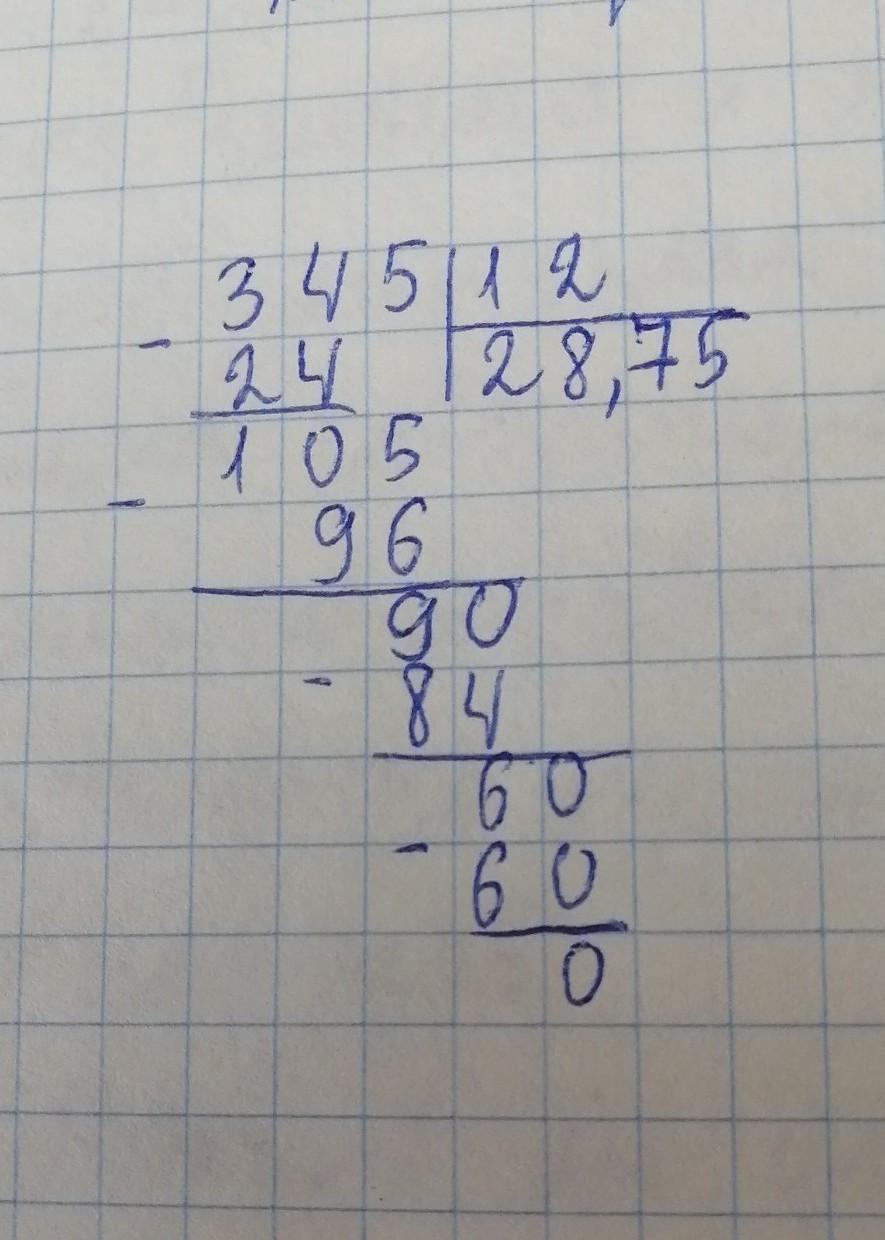 345 12
- 24 28,75
105
- 96
90
- 84
60
- 60
0